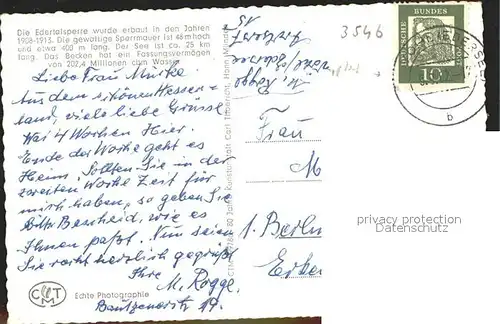 Die Edertalsperre wurde erbaut in den Jahren
1908-1913. Die gewaltige Sperrmauer ist 48 m hoch
und etwa 400 m lang. Der See ist ca. 25 km
lang. Das Becken hat ein Fassungsvermögen
von 202,4 Millionen cbm Wasser.
Liebe Frau
Aus dem schönen Hessen-
land, viele liebe Grüsse.
War 4 Wochen hier.
Ende der Woche geht es
Heim. Sollten Sie in der
zweiten Woche Zeit für
mich haben, so geben Sie
Bitte Bescheid, wie es
Ihnen paßt. Nun seien
Sie recht herzlich gegrüßt
Ihre M. Rogge.
CTM
Echte Photographie
19.
80 Jahre Kunstanstalt Carl Thoericht, Hann. Münden
3546
M. Rogge
DEUTSCHE BUNDESPOST
10
b
Frau
M
1. Berlin
privacy protection
Datenschutz